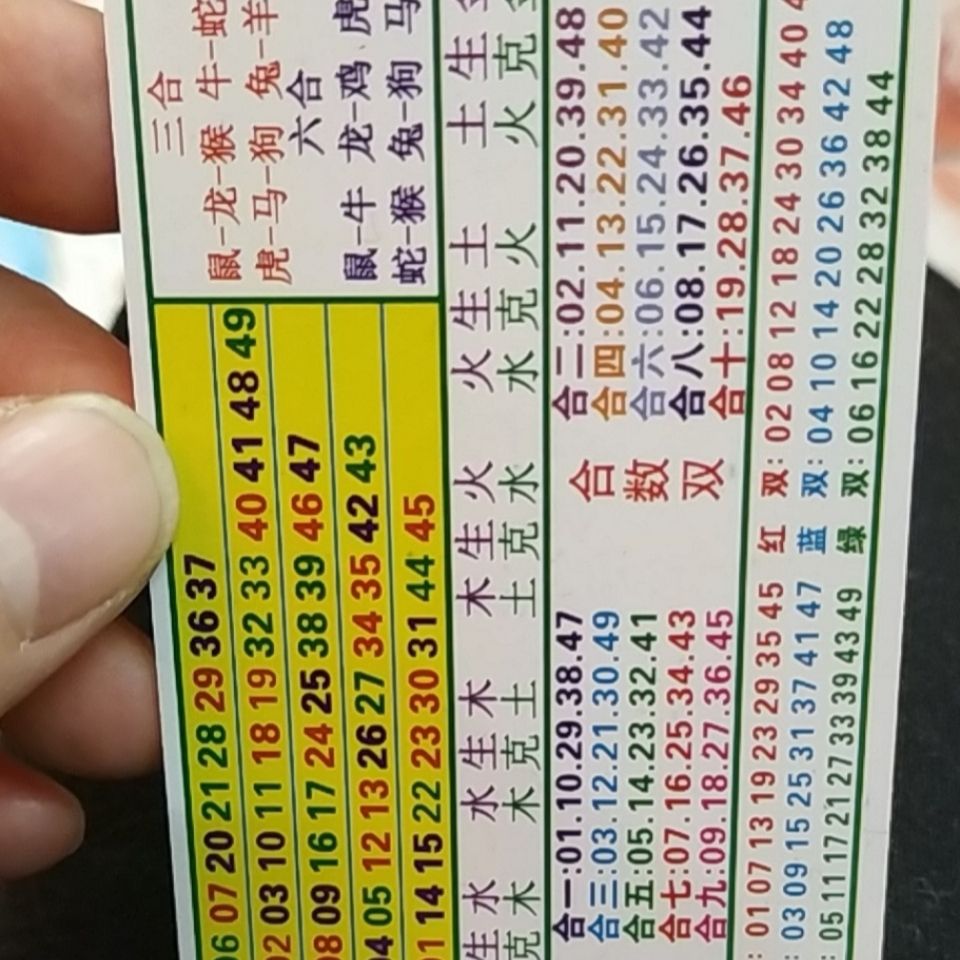 06 07 20 21 28 29 36 37
02 03 10 11 18 19 32 33 40 41 48 49
08 09 16 17 24 25 38 39 46 47
04 05 12 13 26 27 34 35 42 43
01 14 15 22 23 30 31 44 45
三合
鼠-龙-猴 牛-蛇
虎-马-狗 兔-羊
六合
鼠-牛 龙-鸡 虎
蛇-猴 兔-狗 马
生水 水生木 木生火 火生土 土生金
克木 木克土 土克水 水克火 火克金
合一:01.10.29.38.47
合三:03.12.21.30.49
合五:05.14.23.32.41
合七:07.16.25.34.43
合九:09.18.27.36.45
合
数
双
合二:02.11.20.39.48
合四:04.13.22.31.40
合六:06.15.24.33.42
合八:08.17.26.35.44
合十:19.28.37.46
: 01 07 13 19 23 29 35 45 红双: 02 08 12 18 24 30 34 40
: 03 09 15 25 31 37 41 47 蓝双: 04 10 14 20 26 36 42 48
: 05 11 17 21 27 33 39 43 49 绿双: 06 16 22 28 32 38 44